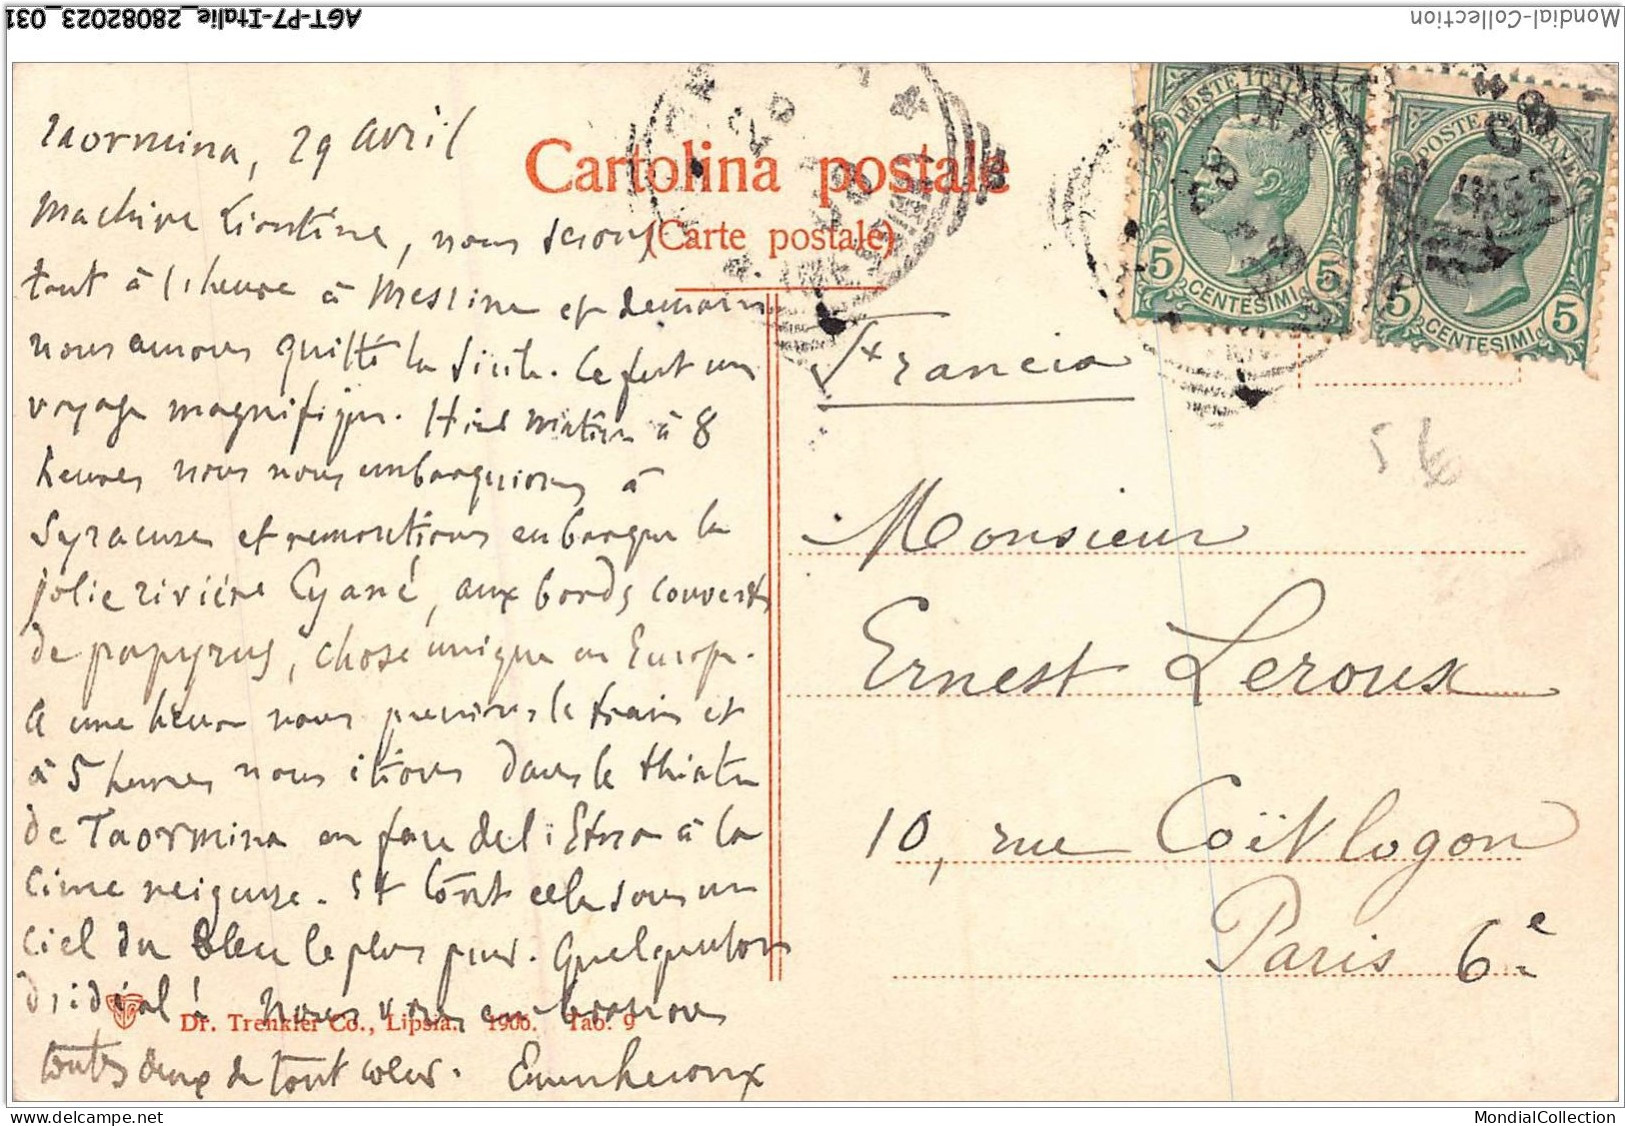 AGT-P7-Italie_28082023_031
Mondial-Collection
Cartolina postale
(Carte postale)
POSTE ITALIANE
5 CENTESIMI 5
POSTE ITALIANE
5 CENTESIMI 5
Taormina, 29 avril
nous serons
tout à l'heure à Messine et demain
nous aurons quitté la Sicile. Ce fut un
voyage magnifique. Hier matin à 8
heures nous nous embarquions à
Syracuse et remontions en barque la
jolie rivière Cyané, aux bords couverts
de papyrus, chose unique en Europe.
à une heure nous prenions le train et
à 5 heures nous étions dans le théâtre
de Taormina en face de l'Etna à la
cime neigeuse. Et tout cela sous un
ciel du bleu le plus pur. Quelque
d'idéal! Nous vous embrassons
toutes deux de tout coeur.
Dr. Trenkler Co., Lipsia. 1906. Tab. 9
Francia
56
Monsieur
Ernest Leroux
10, rue Coëtlogon
Paris 6e
MondialCollection
www.delcampe.net